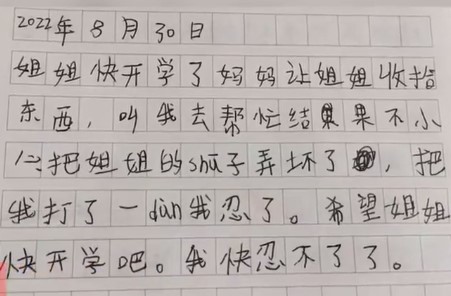 2022年8月30日
姐姐快开学了妈妈让姐姐收拾
东西，叫我去帮忙结果果不小
心把姐姐的shū子弄坏了，把
我打了一dùn我忍了。希望姐姐
快开学吧。我快忍不了了。